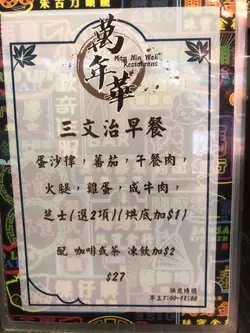 萬年華
Man Nin Wah
Restaurant
三文治早餐
蛋沙律，蕃茄，午餐肉，
火腿，雞蛋，咸牛肉，
芝士(選2項)(烘底加$1)
配 咖啡或茶 凍飲加$2
$27
供應時間
早上7:00-11:00